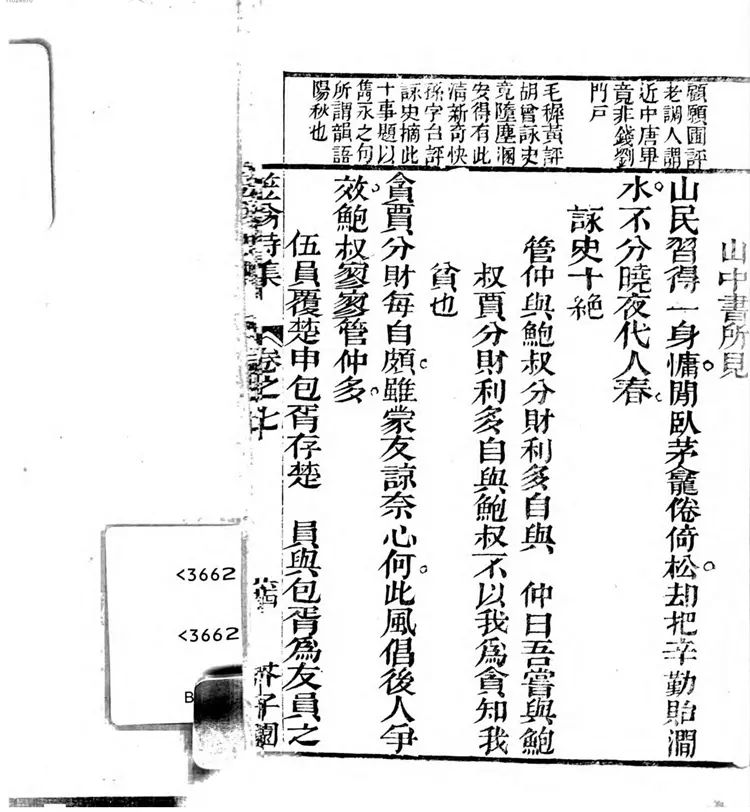 顧願圃評
老調人謂
近中唐畢
竟非錢劉
門戸
毛稺黄評
胡曾詠史
竟墮塵溷
安得有此
清新奇快
孫字台評
詠史摘此
十事題以
雋永之句
所謂韻語
陽秋也
山中書所見
山民習得一身慵。閒臥茅龕倦倚松。却把辛勤貽澗
水。不分曉夜代人舂。
詠史十絶
管仲與鮑叔分財利多自與 仲曰吾嘗與鮑
叔賈分財利多自與鮑叔不以我爲貪知我
貧也
貪賈分財每自頗。雖蒙友諒奈心何。此風倡後人爭
效。鮑叔寥寥管仲多。
伍員覆楚申包胥存楚 員與包胥爲友員之
笠翁詩集 卷之七
芥子園
<3662
<3662
B